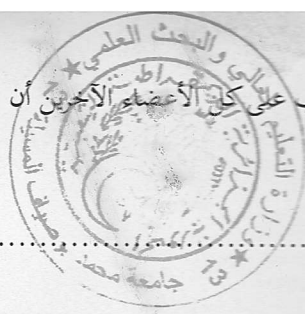 على كل الأعضاء الآخرين أن
وزارة التعليم العالي والبحث العلمي
جامعة محمد بوضياف المسيلة
13